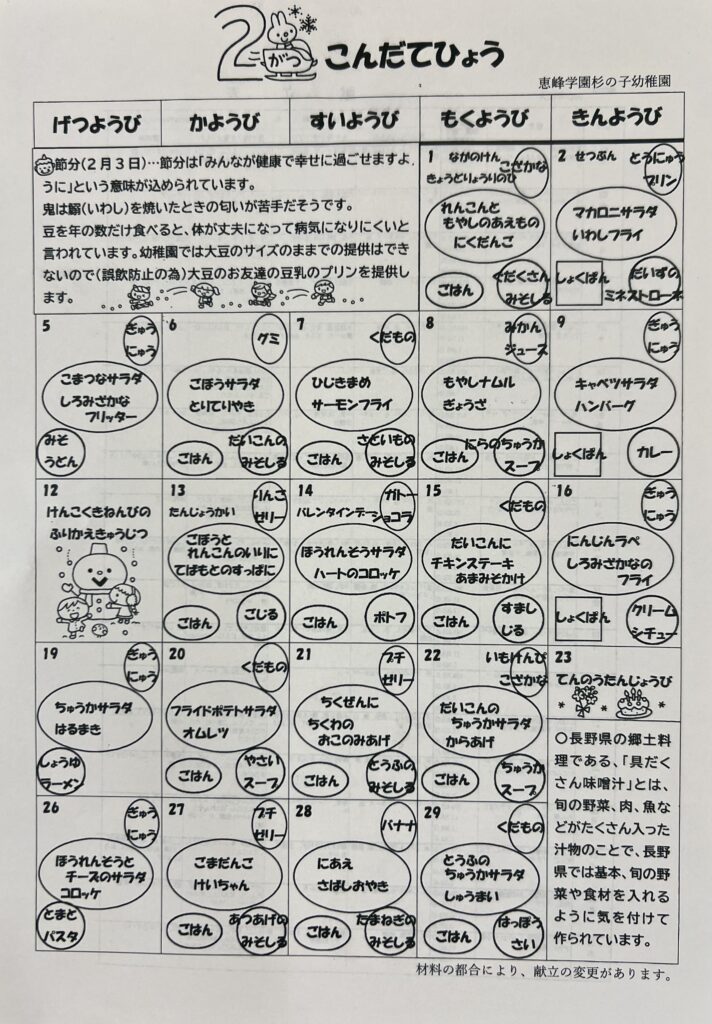 2
がつ
こんだてひょう
恵峰学園杉の子幼稚園
げつようび
かようび
すいようび
もくようび
きんようび
節分(2月3日)…節分は「みんなが健康で幸せに過ごせますよ
うに」という意味が込められています。
鬼は鰯(いわし)を焼いたときの匂いが苦手だそうです。
豆を年の数だけ食べると、体が丈夫になって病気になりにくいと
言われています。幼稚園では大豆のサイズのままでの提供はでき
ないので(誤飲防止の為)大豆のお友達の豆乳のプリンを提供し
ます。
1 ながのけん
きょうどりょうりのひ
こざかな
れんこんと
もやしのあえもの
にくだんご
ごはん
ぐだくさん
みそしる
2 せつぶん
とうにゅう
プリン
マカロニサラダ
いわしフライ
しょくぱん
だいずの
ミネストローネ
5
ぎゅう
にゅう
こまつなサラダ
しろみざかな
フリッター
みそ
うどん
6
グミ
ごぼうサラダ
とりてりやき
ごはん
だいこんの
みそしる
7
くだもの
ひじきまめ
サーモンフライ
ごはん
さといもの
みそしる
8
みかん
ジュース
もやしナムル
ぎょうざ
ごはん
にらのちゅうか
スープ
9
ぎゅう
にゅう
キャベツサラダ
ハンバーグ
しょくぱん
カレー
12
けんこくきねんびの
ふりかえきゅうじつ
13
たんじょうかい
りんご
ゼリー
ごぼうと
れんこんのいりに
てばもとのすっぱに
ごはん
ごじる
14
バレンタインデー
ガトー
ショコラ
ほうれんそうサラダ
ハートのコロッケ
ごはん
ポトフ
15
くだもの
だいこんに
チキンステーキ
あまみそかけ
ごはん
すまし
じる
16
ぎゅう
にゅう
にんじんラペ
しろみざかなの
フライ
しょくぱん
クリーム
シチュー
19
ぎゅう
にゅう
ちゅうかサラダ
はるまき
しょうゆ
ラーメン
20
くだもの
フライドポテトサラダ
オムレツ
ごはん
やさい
スープ
21
プチ
ゼリー
ちくぜんに
ちくわの
おこのみあげ
ごはん
とうふの
みそしる
22
いもけんぴ
こざかな
だいこんの
ちゅうかサラダ
からあげ
ごはん
ちゅうか
スープ
23
てんのうたんじょうび
○長野県の郷土料
理である、「具だく
さん味噌汁」とは、
旬の野菜、肉、魚な
どがたくさん入った
汁物のことで、長野
県では基本、旬の野
菜や食材を入れる
ように気を付けて
作られています。
26
ぎゅう
にゅう
ほうれんそうと
チーズのサラダ
コロッケ
とまと
パスタ
27
プチ
ゼリー
ごまだんご
けいちゃん
ごはん
あつあげの
みそしる
28
バナナ
にあえ
さばしおやき
ごはん
たまねぎの
みそしる
29
くだもの
とうふの
ちゅうかサラダ
しゅうまい
ごはん
はっぽう
さい
材料の都合により、献立の変更があります。